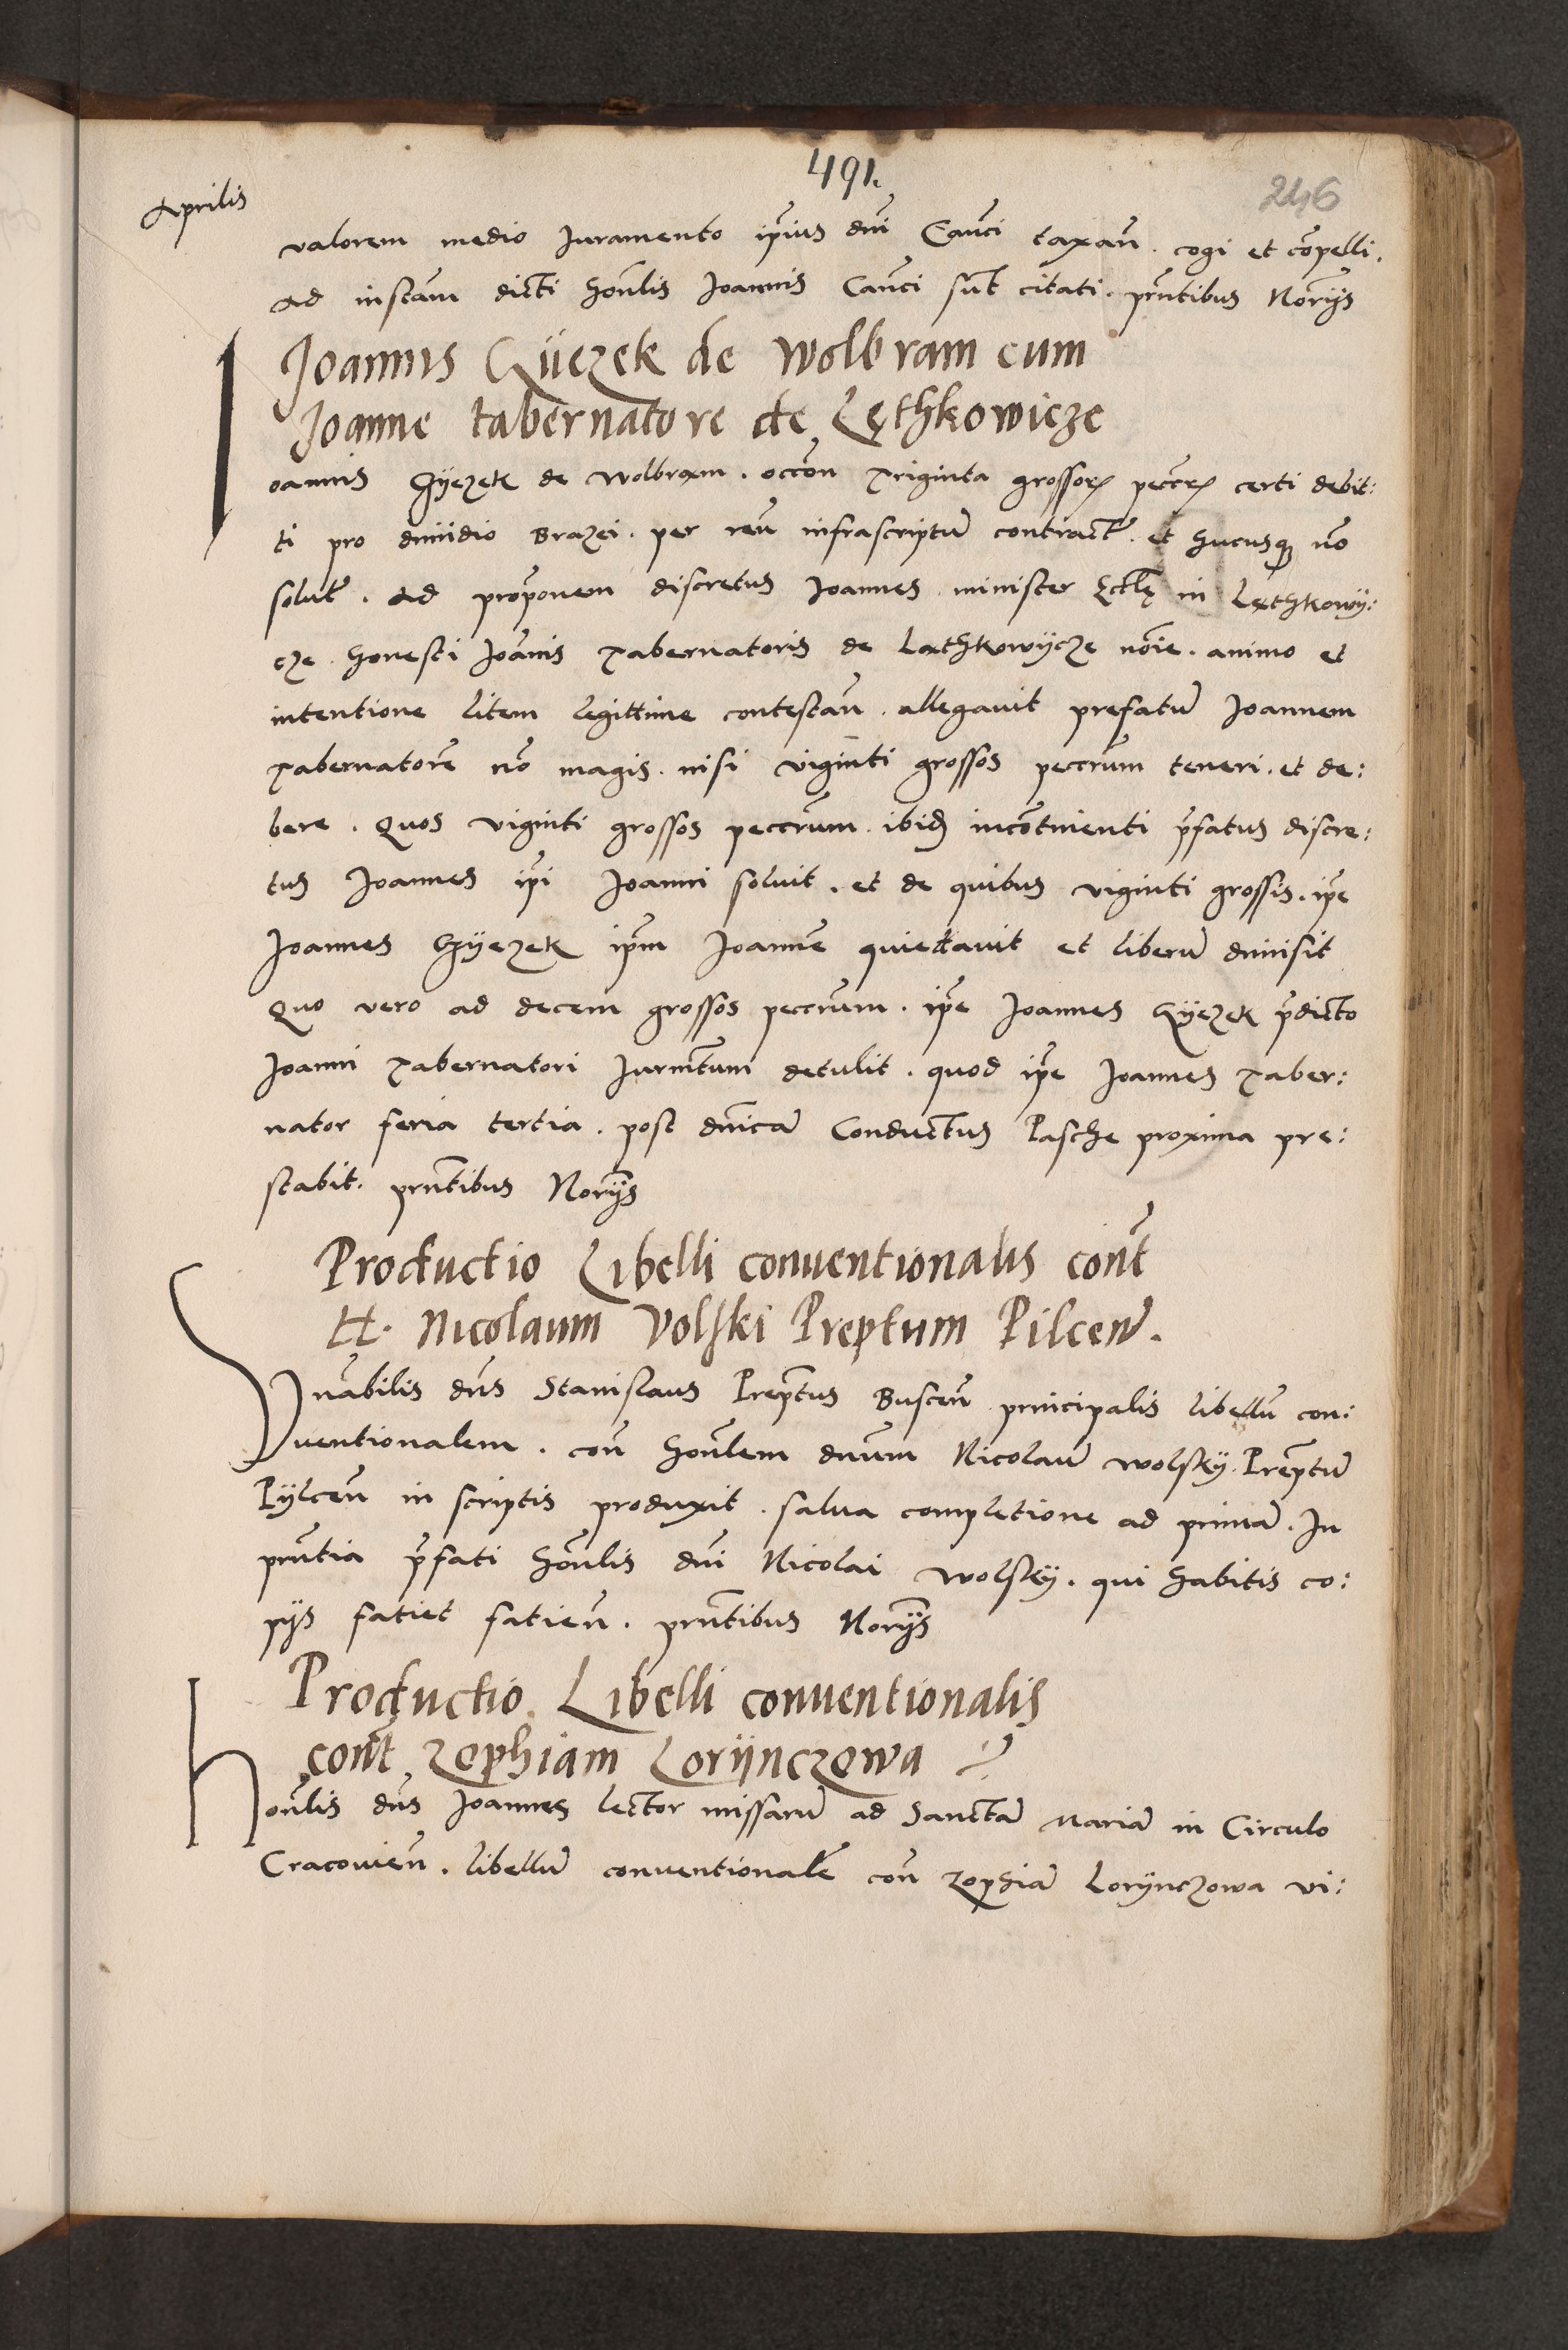 491.
246
Aprilis
valorem medio Juramento ip̃ius dñi Cauñci taxañ. cogi et cõpelli.
ad instãm dicti hoñlis Joannis Cauñci sũt citati. pñtibus Noriis
Joannis Gÿezek de Wolbram cum
Joanne tabernatore de Lęthkowicze
Joannis Gÿezek de Wolbram. occõn triginta grossorꝝ peccrꝝ certi debit:
ti pro dimidio Brazei. per reũ infrascriptũ contract̃. et hucusqꝫ nõ
solut̃. Ad propõnem discretus Joannes minister Eccłę in Lęthkowÿ:
cze. honesti Joãnis Tabernatoris de Lathkowÿcze nõie. animo et
intentione litem legittime contestañ. allegavit prefatũ Joannem
Tabernatorẽ nõ magis. nisi viginti grossos peccrum̃ teneri. et de:
bere. Quos viginti grossos peccrum̃. ibidẽ incõtinenti p̃fatus discre:
tus Joannes ip̃i Joanni solvit. et de quibus viginti grossis. ip̃e
Joannes Gÿezek ip̃m Joannẽ quietavit et liberũ dimisit
Quo vero ad decem grossos peccrum̃. ip̃e Joannes Gÿezek p̃dicto
Joanni Tabernatori Jurmẽtum detulit. quod ip̃e Joannes Taber:
nator feria tertia. post dñicã Conductus Pasche proxima pre:
stabit. pñtibus Noriis
Productio Libelli conventionalis cont̃
H. Nicolaum Volski Preptum Pilceñ.
Vnãbilis dñs Stanislaus Prep̃tus Busceñ principalis libellũ con:
ventionalem. coñ hoñlem dnum̃ Nicolaũ Wolskÿ. Prep̃tũ
Pÿlceñ in scriptis produxit. salva completione ad primã. In
pñtia p̃fati hoñlis dñi Nicolai Wolskÿ. qui habitis co:
piis fatiet fatieñ. pñtibus Noriis
Productio Libelli conventionalis
cont̃ Zophiam Lorÿnczowa
hoñlis dñs Joannes lector missarũ ad Sanctã Mariã in Circulo
Cracovieñ. libellũ conventionalẽ coñ Zophiã Lorÿnczowa vi: